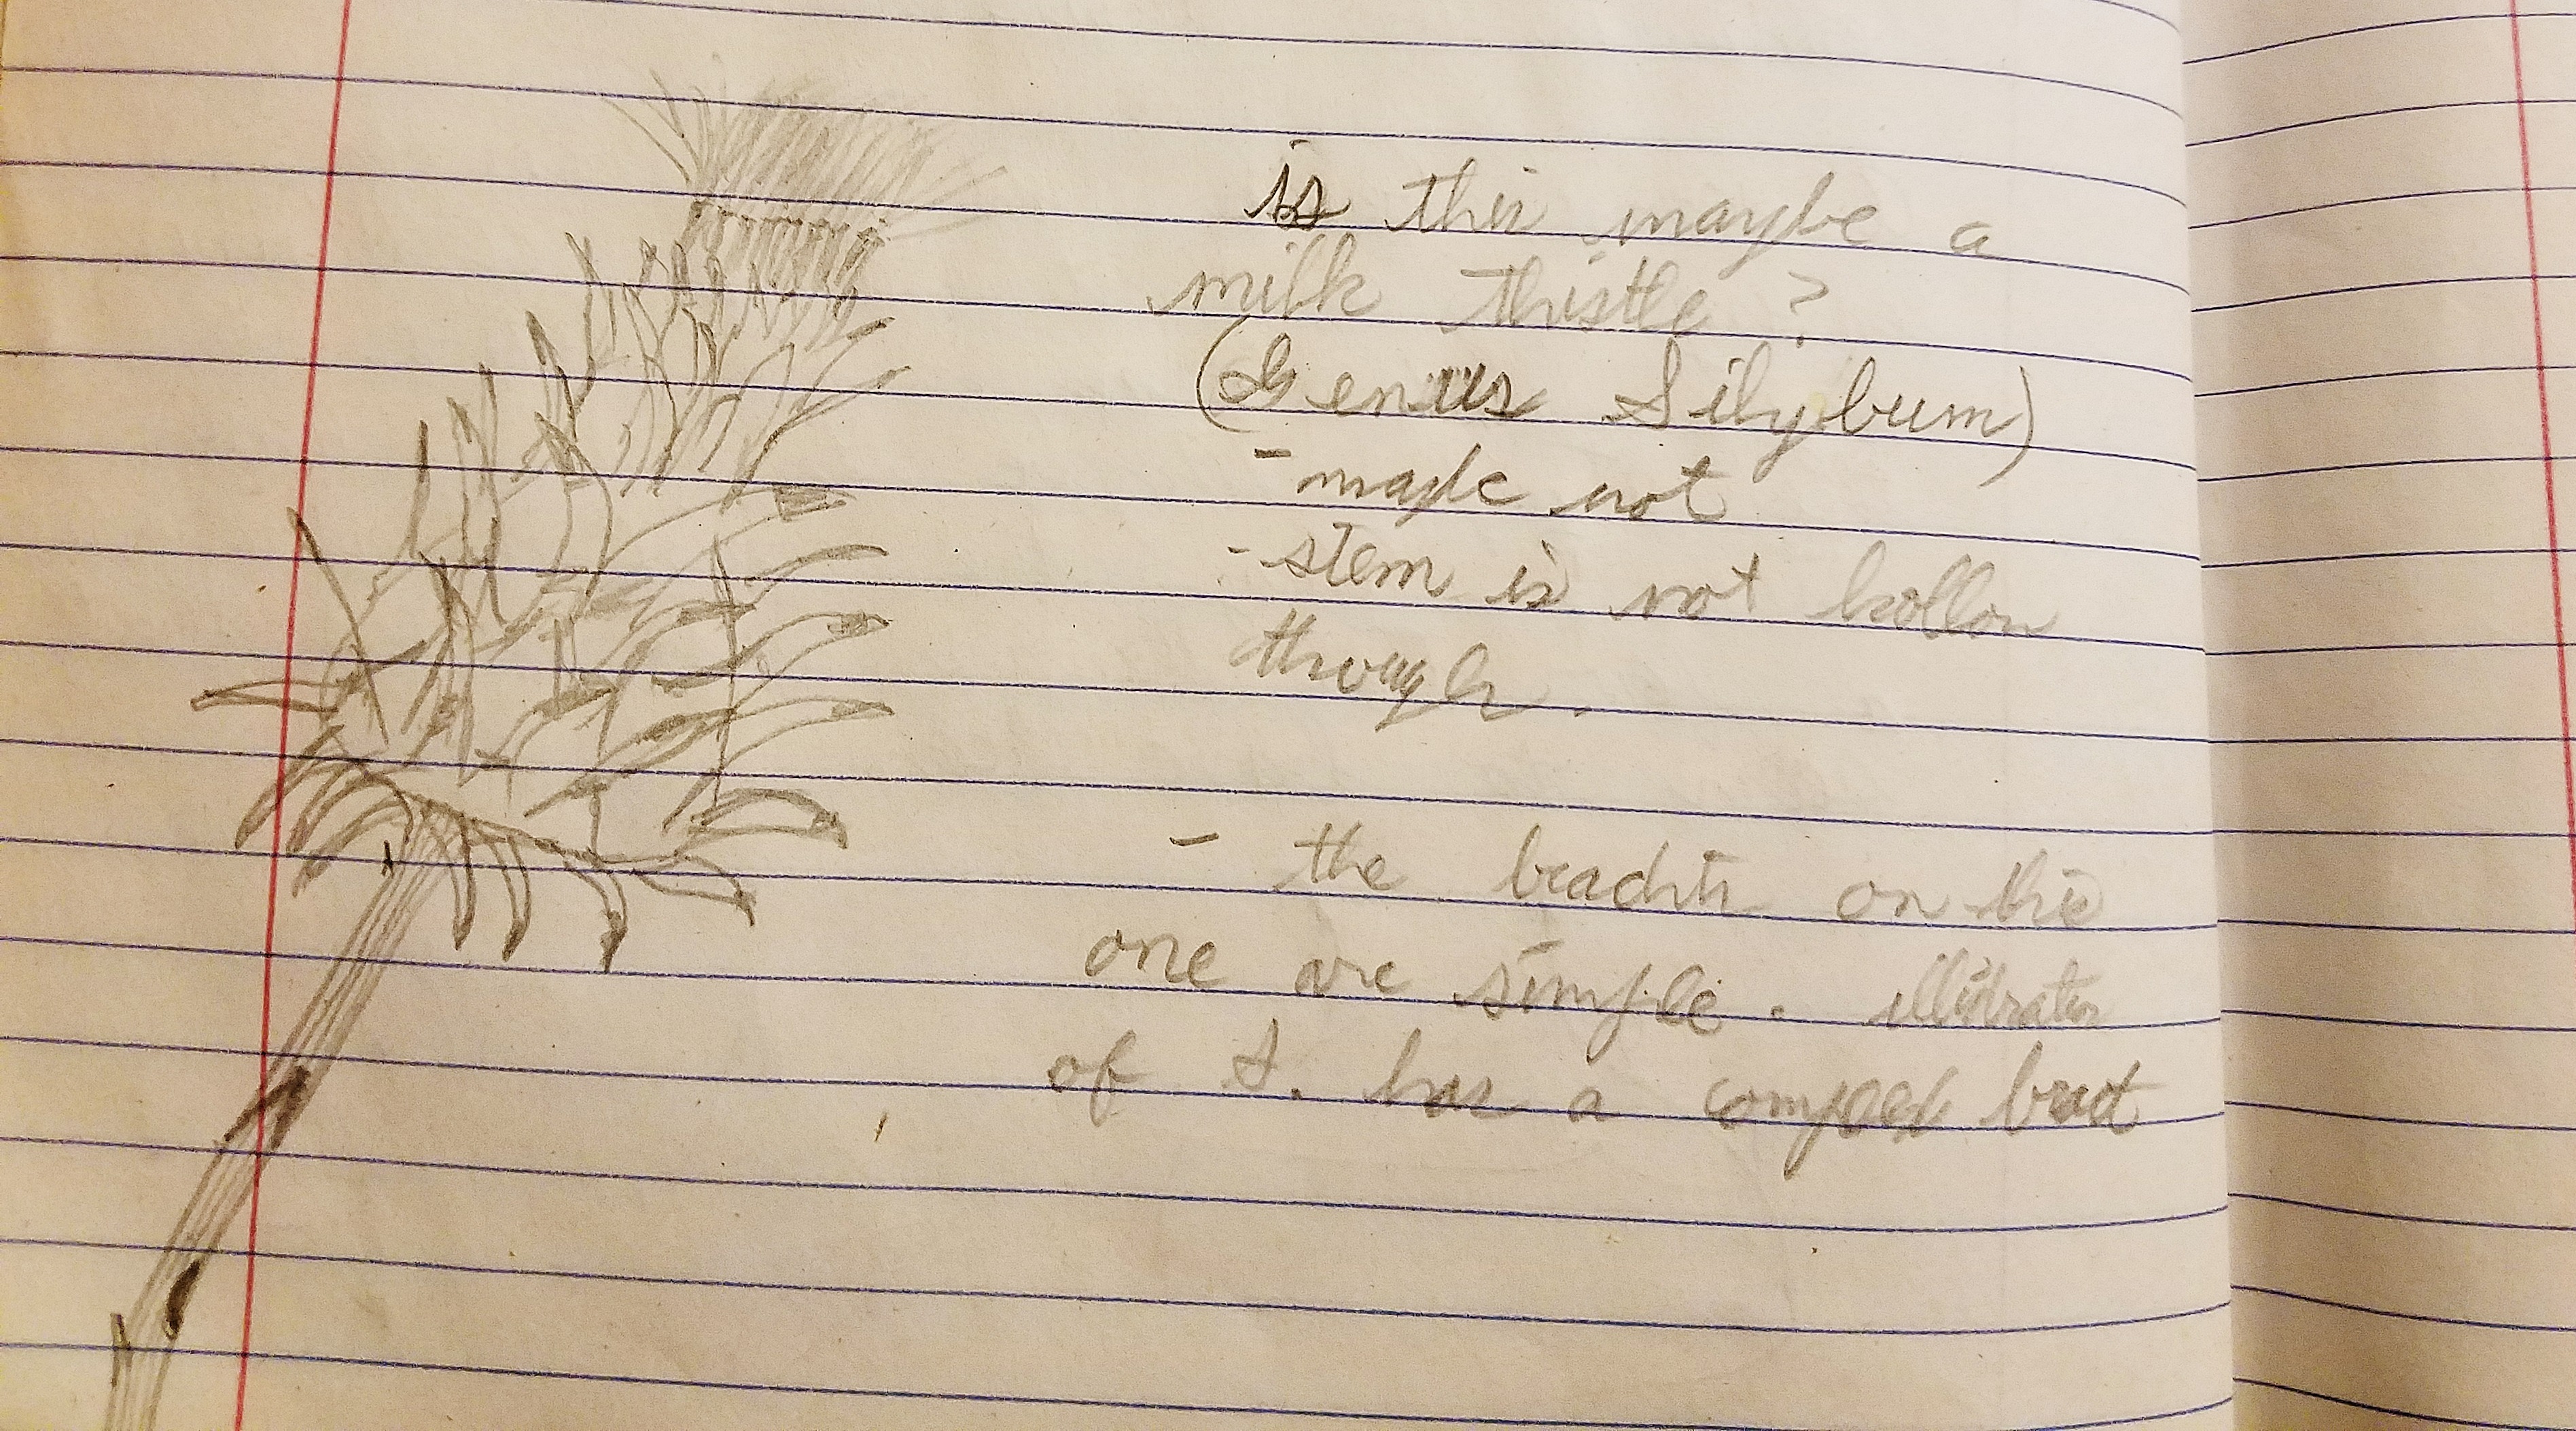 is this maybe a
milk thistle ?
(Genus Silybum)
- maybe not
- stem is not hollow
though.
- the on this
one are simple. illustration
of S. has a complex bract